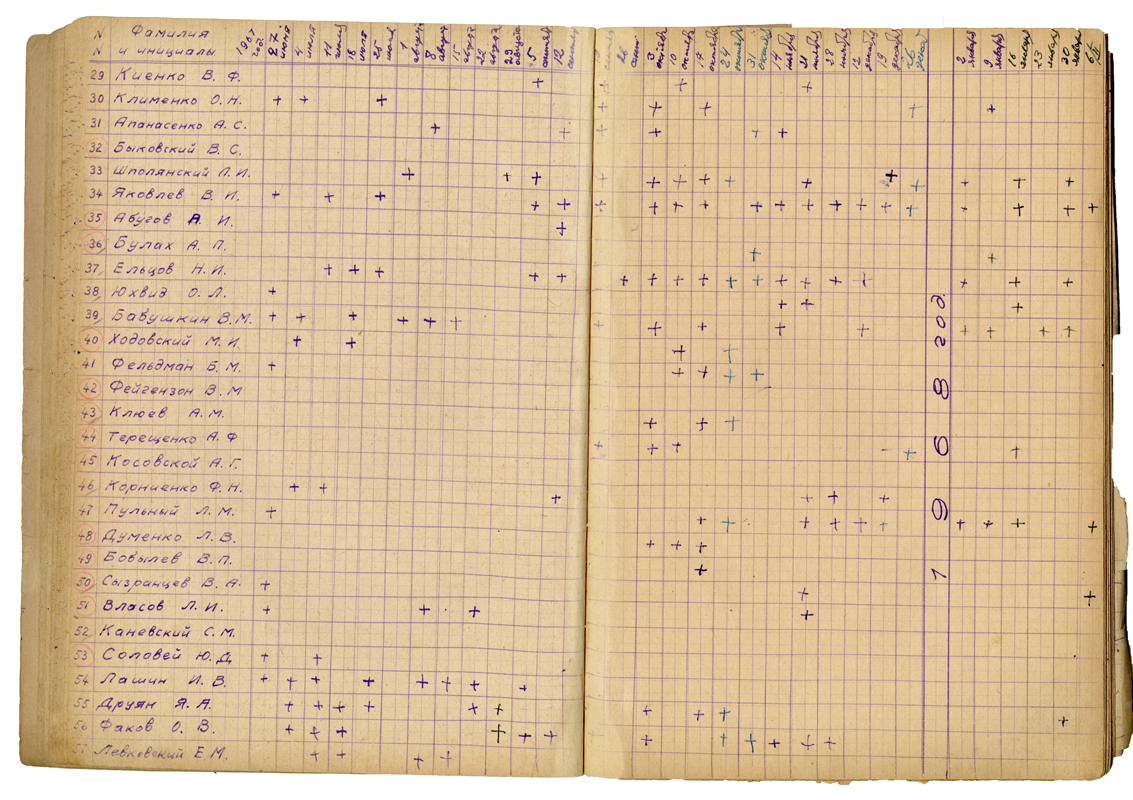 N Фамилия 1967 год. 27 июня 4 июля 11 июля 18 июля 25 июля 1 августа 8 август 15 август 22 августа 29 августа 5 сентяб 12 сентяб 26 сент. 3 октября 10 октября 17 октября 24 октября 31 октября 14 ноября 21 ноября 28 ноября 12 декабря 19 декаб 26 декаб 2 январ 9 январ 16 январ 23 январ 30 январ 6/II
N и инициалы
29 Киенко В. Ф.
30 Клименко О. Н.
31 Апанасенко А. С.
32 Быковский В. С.
33 Шполянский Л. И.
34 Яковлев В. И.
35 Абугов А. И.
36 Булах А. П.
37 Ельцов Н. И.
38 Юхвид О. Л.
39 Бавушкин В. М.
40 Ходовский М. И.
41 Фельдман Б. М.
42 Фейгензон В. М
43 Клюев А. М.
44 Терещенко А. Ф
45 Косовской А. Г.
46 Корниенко Ф. Н.
47 Пульный Л. М.
48 Думенко Л. В.
49 Бовылев В. П.
50 Сызранцев В. А.
51 Власов Л. И.
52 Каневский С. М.
53 Соловей Ю. Д
54 Лашин И. В.
55 Друян Я. А.
56 Факов О. В.
57 Левковский Е. М.
1968 год.